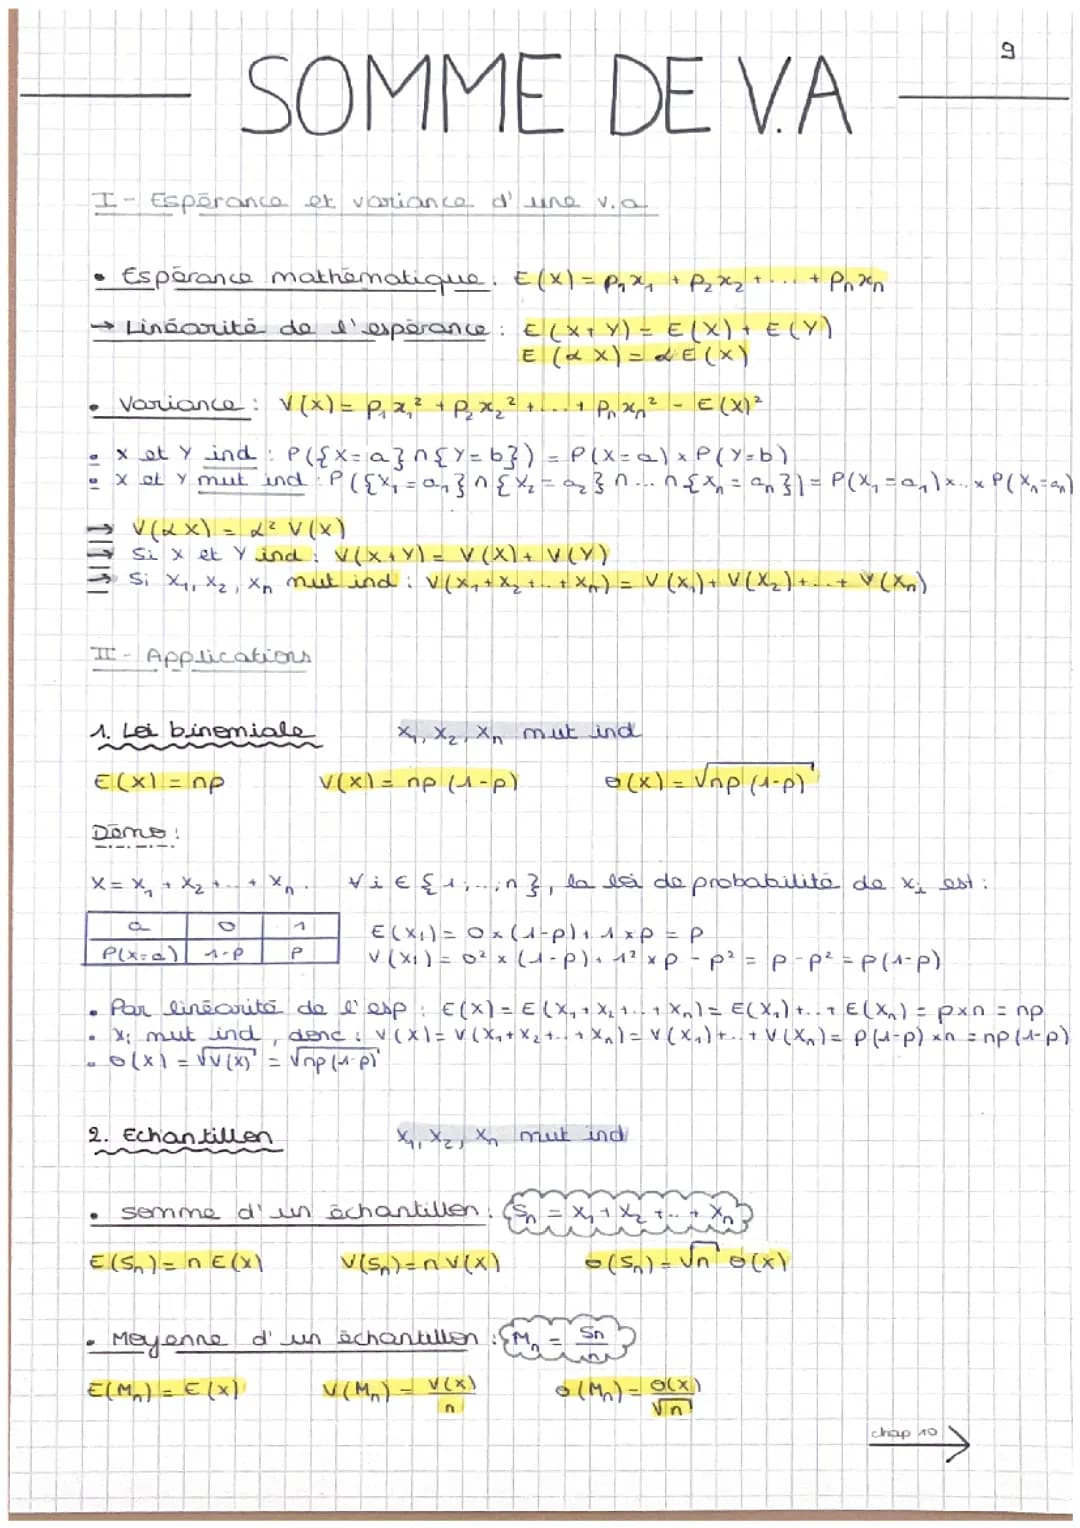 9
SOMME DE V.A
I - Espérance et variance d'une v.a
• Espérance mathématique : E(X) = p₁x₁ + p₂x₂ + ... + pₙxₙ
→ Linéarité de l'espérance : E(X+Y) = E(X) + E(Y)
E(αX) = αE(X)
• Variance : V(X) = p₁x₁² + p₂x₂² + ... + pₙxₙ² - E(X)²
• X et Y ind : P({X=a}∩{Y=b}) = P(X=a) × P(Y=b)
• X et Y mut ind : P({X₁=a₁}∩{X₂=a₂}∩...∩{Xₙ=aₙ}) = P(X₁=a₁)×..×P(Xₙ=aₙ)
→ V(αX) = α² V(X)
→ Si X et Y ind : V(X+Y) = V(X) + V(Y)
→ Si X₁, X₂, Xₙ mut ind : V(X₁+X₂+...+Xₙ) = V(X₁) + V(X₂) + ... + V(Xₙ)
II - Applications
1. Loi binomiale X₁, X₂, Xₙ mut ind
E(X) = np V(X) = np(1-p) σ(X) = √np(1-p)
Démo :
X = X₁ + X₂ + ... + Xₙ. ∀i ∈ {1;...;n}, la loi de probabilité de Xᵢ est :
a 0 1
P(X=a) 1-p p
E(Xᵢ) = 0×(1-p) + 1×p = p
V(Xᵢ) = 0² × (1-p) + 1² × p - p² = p - p² = p(1-p)
• Par linéarité de l'esp : E(X) = E(X₁+X₂+...+Xₙ) = E(X₁)+...+E(Xₙ) = p×n = np
• Xᵢ mut ind, donc : V(X) = V(X₁+X₂+...+Xₙ) = V(X₁)+...+V(Xₙ) = p(1-p)×n = np(1-p)
• σ(X) = √V(X) = √np(1-p)
2. Echantillon X₁, X₂, Xₙ mut ind
• Somme d'un échantillon : Sₙ = X₁ + X₂ + ... + Xₙ
E(Sₙ) = n E(X) V(Sₙ) = n V(X) σ(Sₙ) = √n σ(X)
• Moyenne d'un échantillon : Mₙ = Sₙ/n
E(Mₙ) = E(X) V(Mₙ) = V(X)/n σ(Mₙ) = σ(X)/√n
chap 10